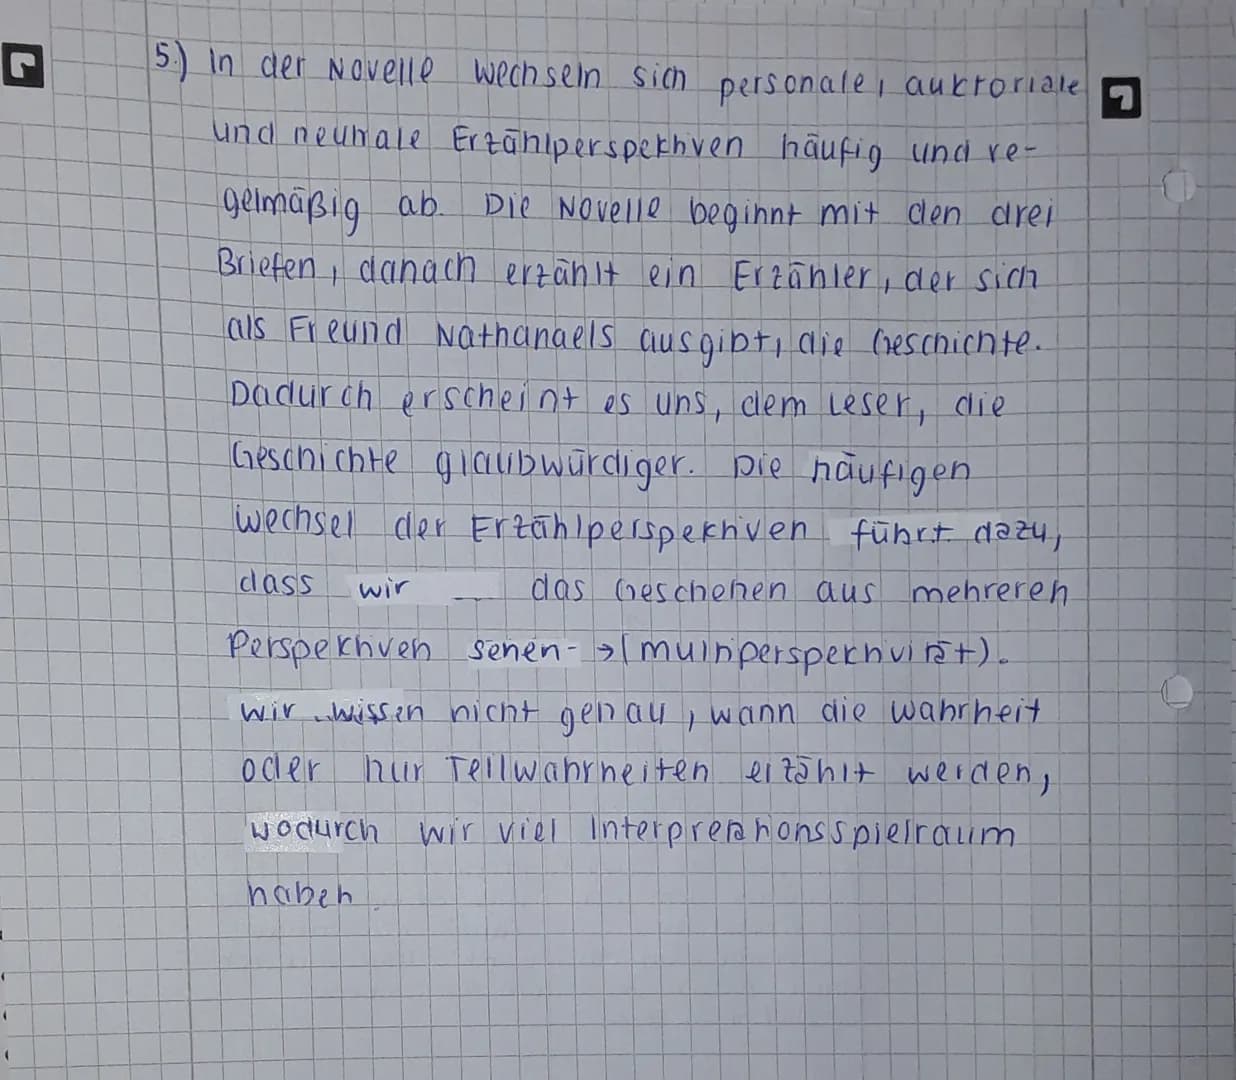 5.) In der Novelle wechseln sich personale, auktoriale
und neutrale Erzählperspektiven häufig und re-
gelmäßig ab. Die Novelle beginnt mit den drei
Briefen, danach erzählt ein Erzähler, der sich
als Freund Nathanaels ausgibt, die Geschichte.
Dadurch erscheint es uns, dem Leser, die
Geschichte glaubwürdiger. Die häufigen
Wechsel der Erzählperspektiven führt dazu,
dass wir das Geschehen aus mehreren
Perspektiven sehen- →(multiperspektivität).
Wir wissen nicht genau, wann die Wahrheit
oder nur Teilwahrheiten erzählt werden,
wodurch wir viel Interpretationsspielraum
haben.